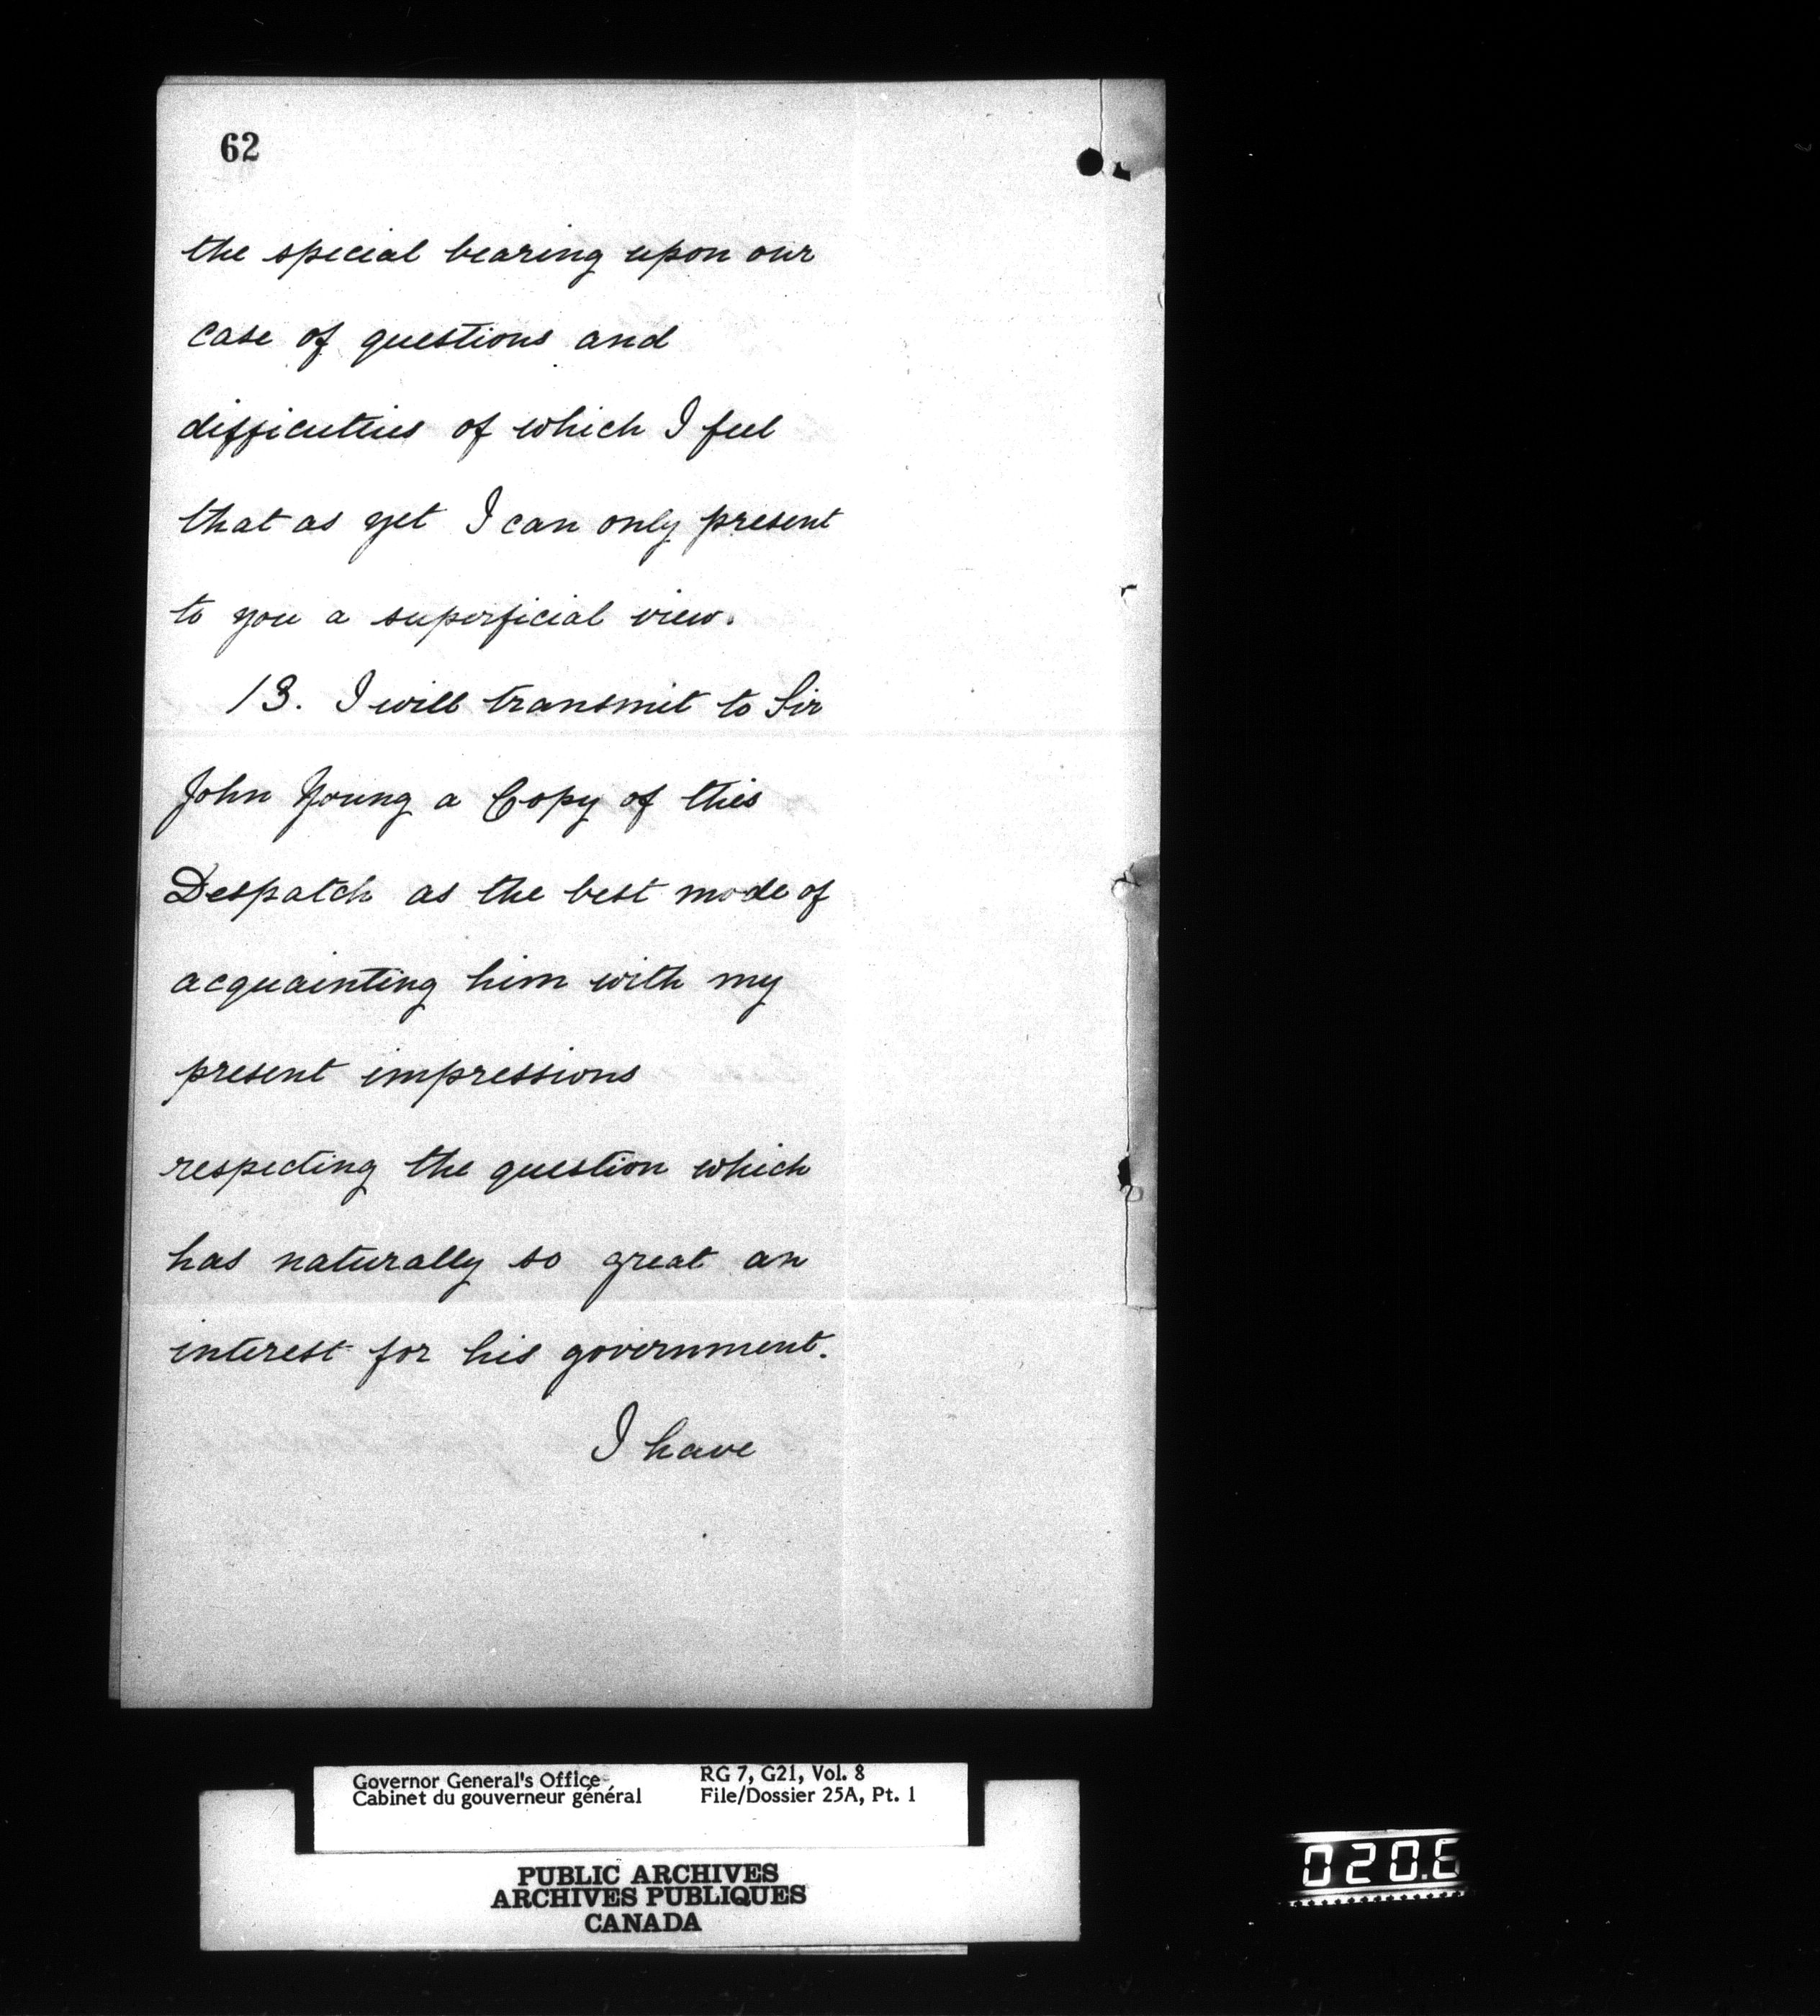 62
the special bearing upon our
case of questions and
difficulties of which I feel
that as yet I can only present
to you a superficial view.
13. I will transmit to Sir
John Young a Copy of this
Despatch as the best mode of
acquainting him with my
present impressions
respecting the question which
has naturally so great an
interest for his government.
I have
Governor General's Office
Cabinet du gouverneur général
RG 7, G21, Vol. 8
File/Dossier 25A, Pt. 1
PUBLIC ARCHIVES
ARCHIVES PUBLIQUES
CANADA